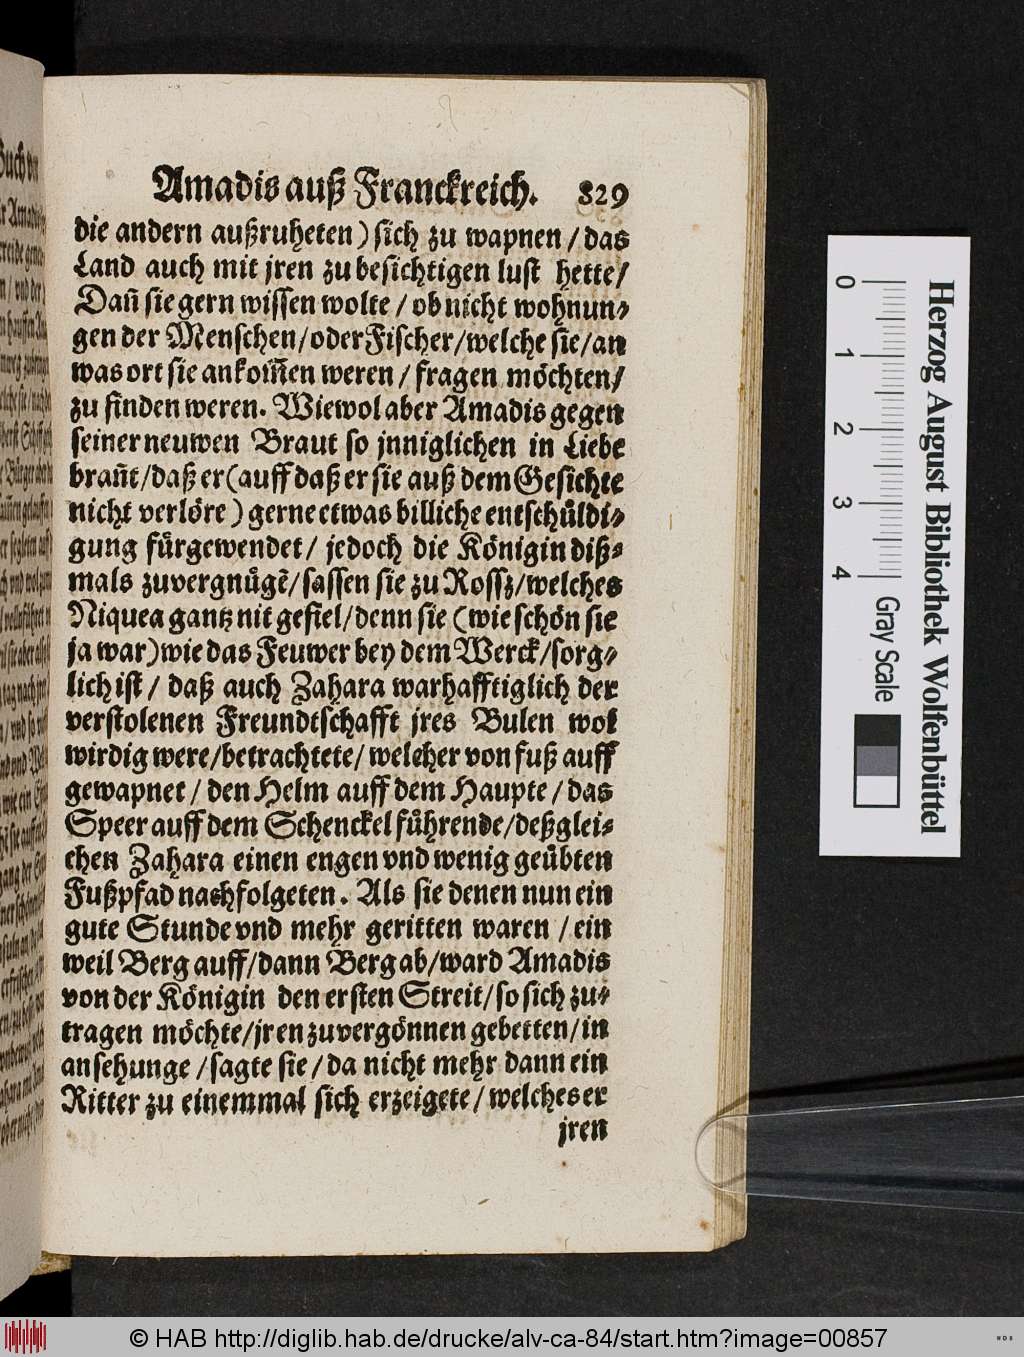 Amadis auß Franckreich. 829
die andern außruheten) sich zu wapnen / das
Land auch mit jren zu besichtigen lust hette/
Dañ sie gern wissen wolte / ob nicht wohnun-
gen der Menschen/oder Fischer/welche sie/an
was ort sie ankom̃en weren / fragen möchten/
zu finden weren. Wiewol aber Amadis gegen
seiner neuwen Braut so jnniglichen in Liebe
brañt/daß er (auff daß er sie auß dem Gesichte
nicht verlöre) gerne etwas billiche entschüldi-
gung fürgewendet / jedoch die Königin diß-
mals zuvergnügẽ/sassen sie zu Rossz/welches
Niquea gantz nit gefiel/denn sie (wie schön sie
ja war) wie das Feuwer bey dem Werck/sorg-
lich ist / daß auch Zahara warhafftiglich der
verstolenen Freundtschafft jres Bulen wol
wirdig were/betrachtete/welcher von fuß auff
gewapnet / den Helm auff dem Haupte / das
Speer auff dem Schenckel führende/deßglei-
chen Zahara einen engen vnd wenig geübten
Fußpfad nachfolgeten. Als sie denen nun ein
gute Stunde vnd mehr geritten waren / ein
weil Berg auff/dann Berg ab/ward Amadis
von der Königin den ersten Streit/so sich zu-
tragen möchte/jren zuvergönnen gebetten/in
ansehunge / sagte sie / da nicht mehr dann ein
Ritter zu einemmal sich erzeigete / welches er
jren
Herzog August Bibliothek Wolfenbüttel
0 1 2 3 4
Gray Scale
© HAB http://diglib.hab.de/drucke/alv-ca-84/start.htm?image=00857